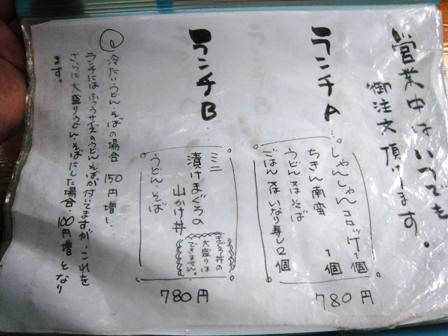 営業中はいつでも
御注文頂けます。
ランチA
しゃんしゃんコロッケ1個
ちきん南蛮 1個
うどん又はそば
ごはん又はいなり寿し2個
780円
ランチB
ミニ
漬けまぐろの
山かけ丼
ミニ丼の
大盛りは
できません。
うどん・そば
780円
冷たいうどん・そばの場合 150円増し、
ランチにはふつうサイズのうどん・そばが付いてますが、これを
さらに大盛りうどん・そばにした場合 100円増となり
ます。